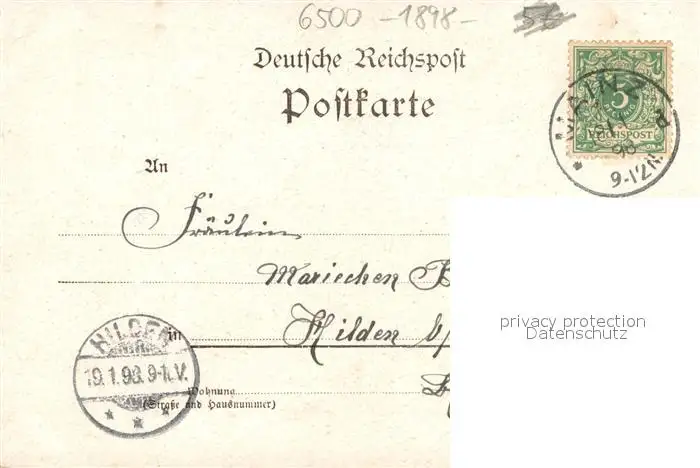 6500 -1898-
Deutsche Reichspost
Postkarte
MAINZ
5
REICHSPOST
98
9-12N.
An
Fräulein
Mariechen B
in Hilden b/
HILDEN
19.1.98.9-1.V.
Wohnung
(Straße und Hausnummer)
privacy protection
Datenschutz